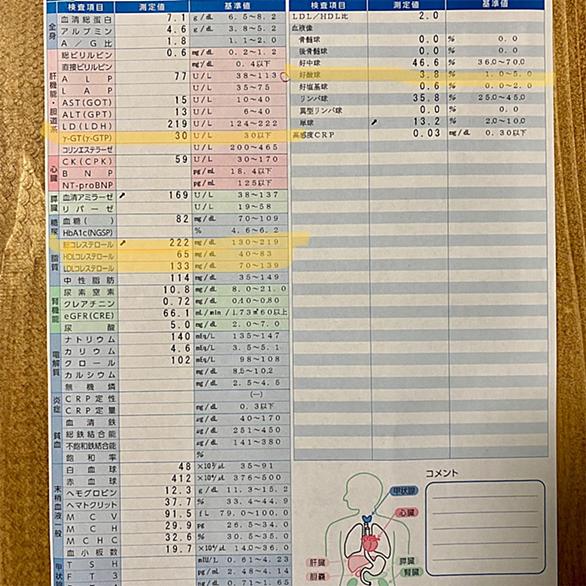 検査項目 測定値 基準値
全身 血清総蛋白 7.1 g/dL 6.5~8.2
アルブミン 4.6 g/dL 3.8~
A/G比 1.8 1.1~2.0
総ビリルビン 0.6 mg/dL 0.2~1.2
直接ビリルビン mg/dL 0.4以下
ALP 77 U/L 38~113
LAP U/L 35~75
AST(GOT) 15 U/L 10~40
ALT(GPT) 13 U/L 6~40
LD(LDH) 219 U/L 124~222
γ-GT(γ-GTP) 30 U/L 30以下
コリンエステラーゼ U/L 200~465
心臓 CK(CPK) 59 U/L 30~170
BNP pg/mL 18.4以下
NT-proBNP pg/mL 125以下
膵臓 血清アミラーゼ 169 U/L 38~137
リパーゼ U/L 19~58
糖尿 血糖( ) 82 mg/dL 70~109
HbA1c(NGSP) % 4.6~6.2
脂質 総コレステロール 222 mg/dL 130~219
HDLコレステロール 65 mg/dL 40~83
LDLコレステロール 133 mg/dL 70~139
中性脂肪 114 mg/dL 35~149
腎機能 尿素窒素 10.8 mg/dL 8.0~21.0
クレアチニン 0.72 mg/dL 0.40~0.80
eGFR(CRE) 66.1 mL/min/1.73㎡ 60以上
尿酸 5.0 mg/dL 2.0~7.0
電解質 ナトリウム 140 mEq/L 135~147
カリウム 4.6 mEq/L 3.5~5.1
クロール 102 mEq/L 98~108
カルシウム mg/dL 8.5~10.2
無機燐 mg/dL 2.5~4.5
炎症 CRP定性 (-)
CRP定量 mg/dL 0.3以下
貧血 血清鉄 μg/dL 40~170
総鉄結合能 μg/dL 251~450
不飽和鉄結合能 μg/dL 141~380
飽和率 %
末梢血液一般 白血球 48 ×10²/μL 35~91
赤血球 412 ×10⁴/μL 376~500
ヘモグロビン 12.3 g/dL 11.3~15.2
ヘマトクリット 37.7 % 33.4~44.9
MCV 91.5 fL 79.0~100.0
MCH 29.9 pg 26.5~34.0
MCHC 32.6 % 30.5~35.0
血小板数 19.7 ×10⁴/μL 14.0~36.0
甲状 TSH 0.61~4.23
FT3 2.48~4.14
0.71~1.65
検査項目 測定値 基準値
LDL/HDL比 2.0
血液像
前骨髄球 0.0 % 0.0
後骨髄球 0.0 % 0.0
好中球 46.6 % 36.0~70.0
好酸球 3.8 % 1.0~5.0
好塩基球 0.6 % 0.0~2.0
リンパ球 35.8 % 25.0~45.0
異型リンパ球 0.0 % 0.0
単球 13.2 % 2.0~10.0
高感度CRP 0.03 mg/dL 0.30以下
コメント
甲状腺
心臓
肝臓
胆嚢
膵臓
腎臓